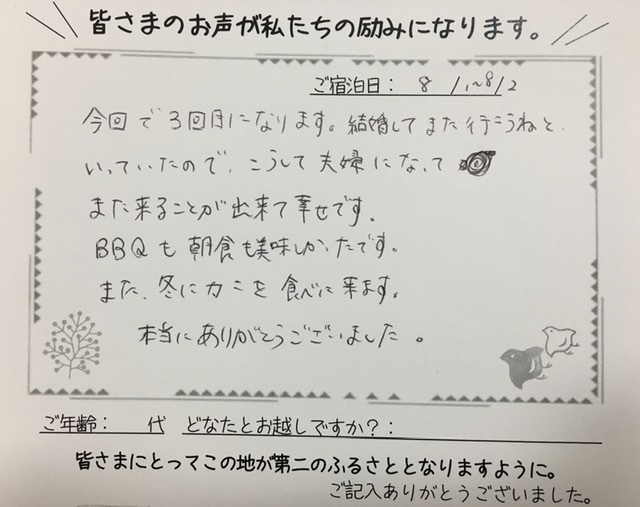 皆さまのお声が私たちの励みになります。
ご宿泊日: 8/1~8/2
今回で3回目になります。結婚してまた行こうねと、
いっていたので、こうして夫婦になって
また来ることが出来て幸せです。
BBQも朝食も美味しかったです。
また、冬にカニを食べに来ます。
本当にありがとうございました。
ご年齢: 代 どなたとお越しですか?:
皆さまにとってこの地が第二のふるさととなりますように。
ご記入ありがとうございました。